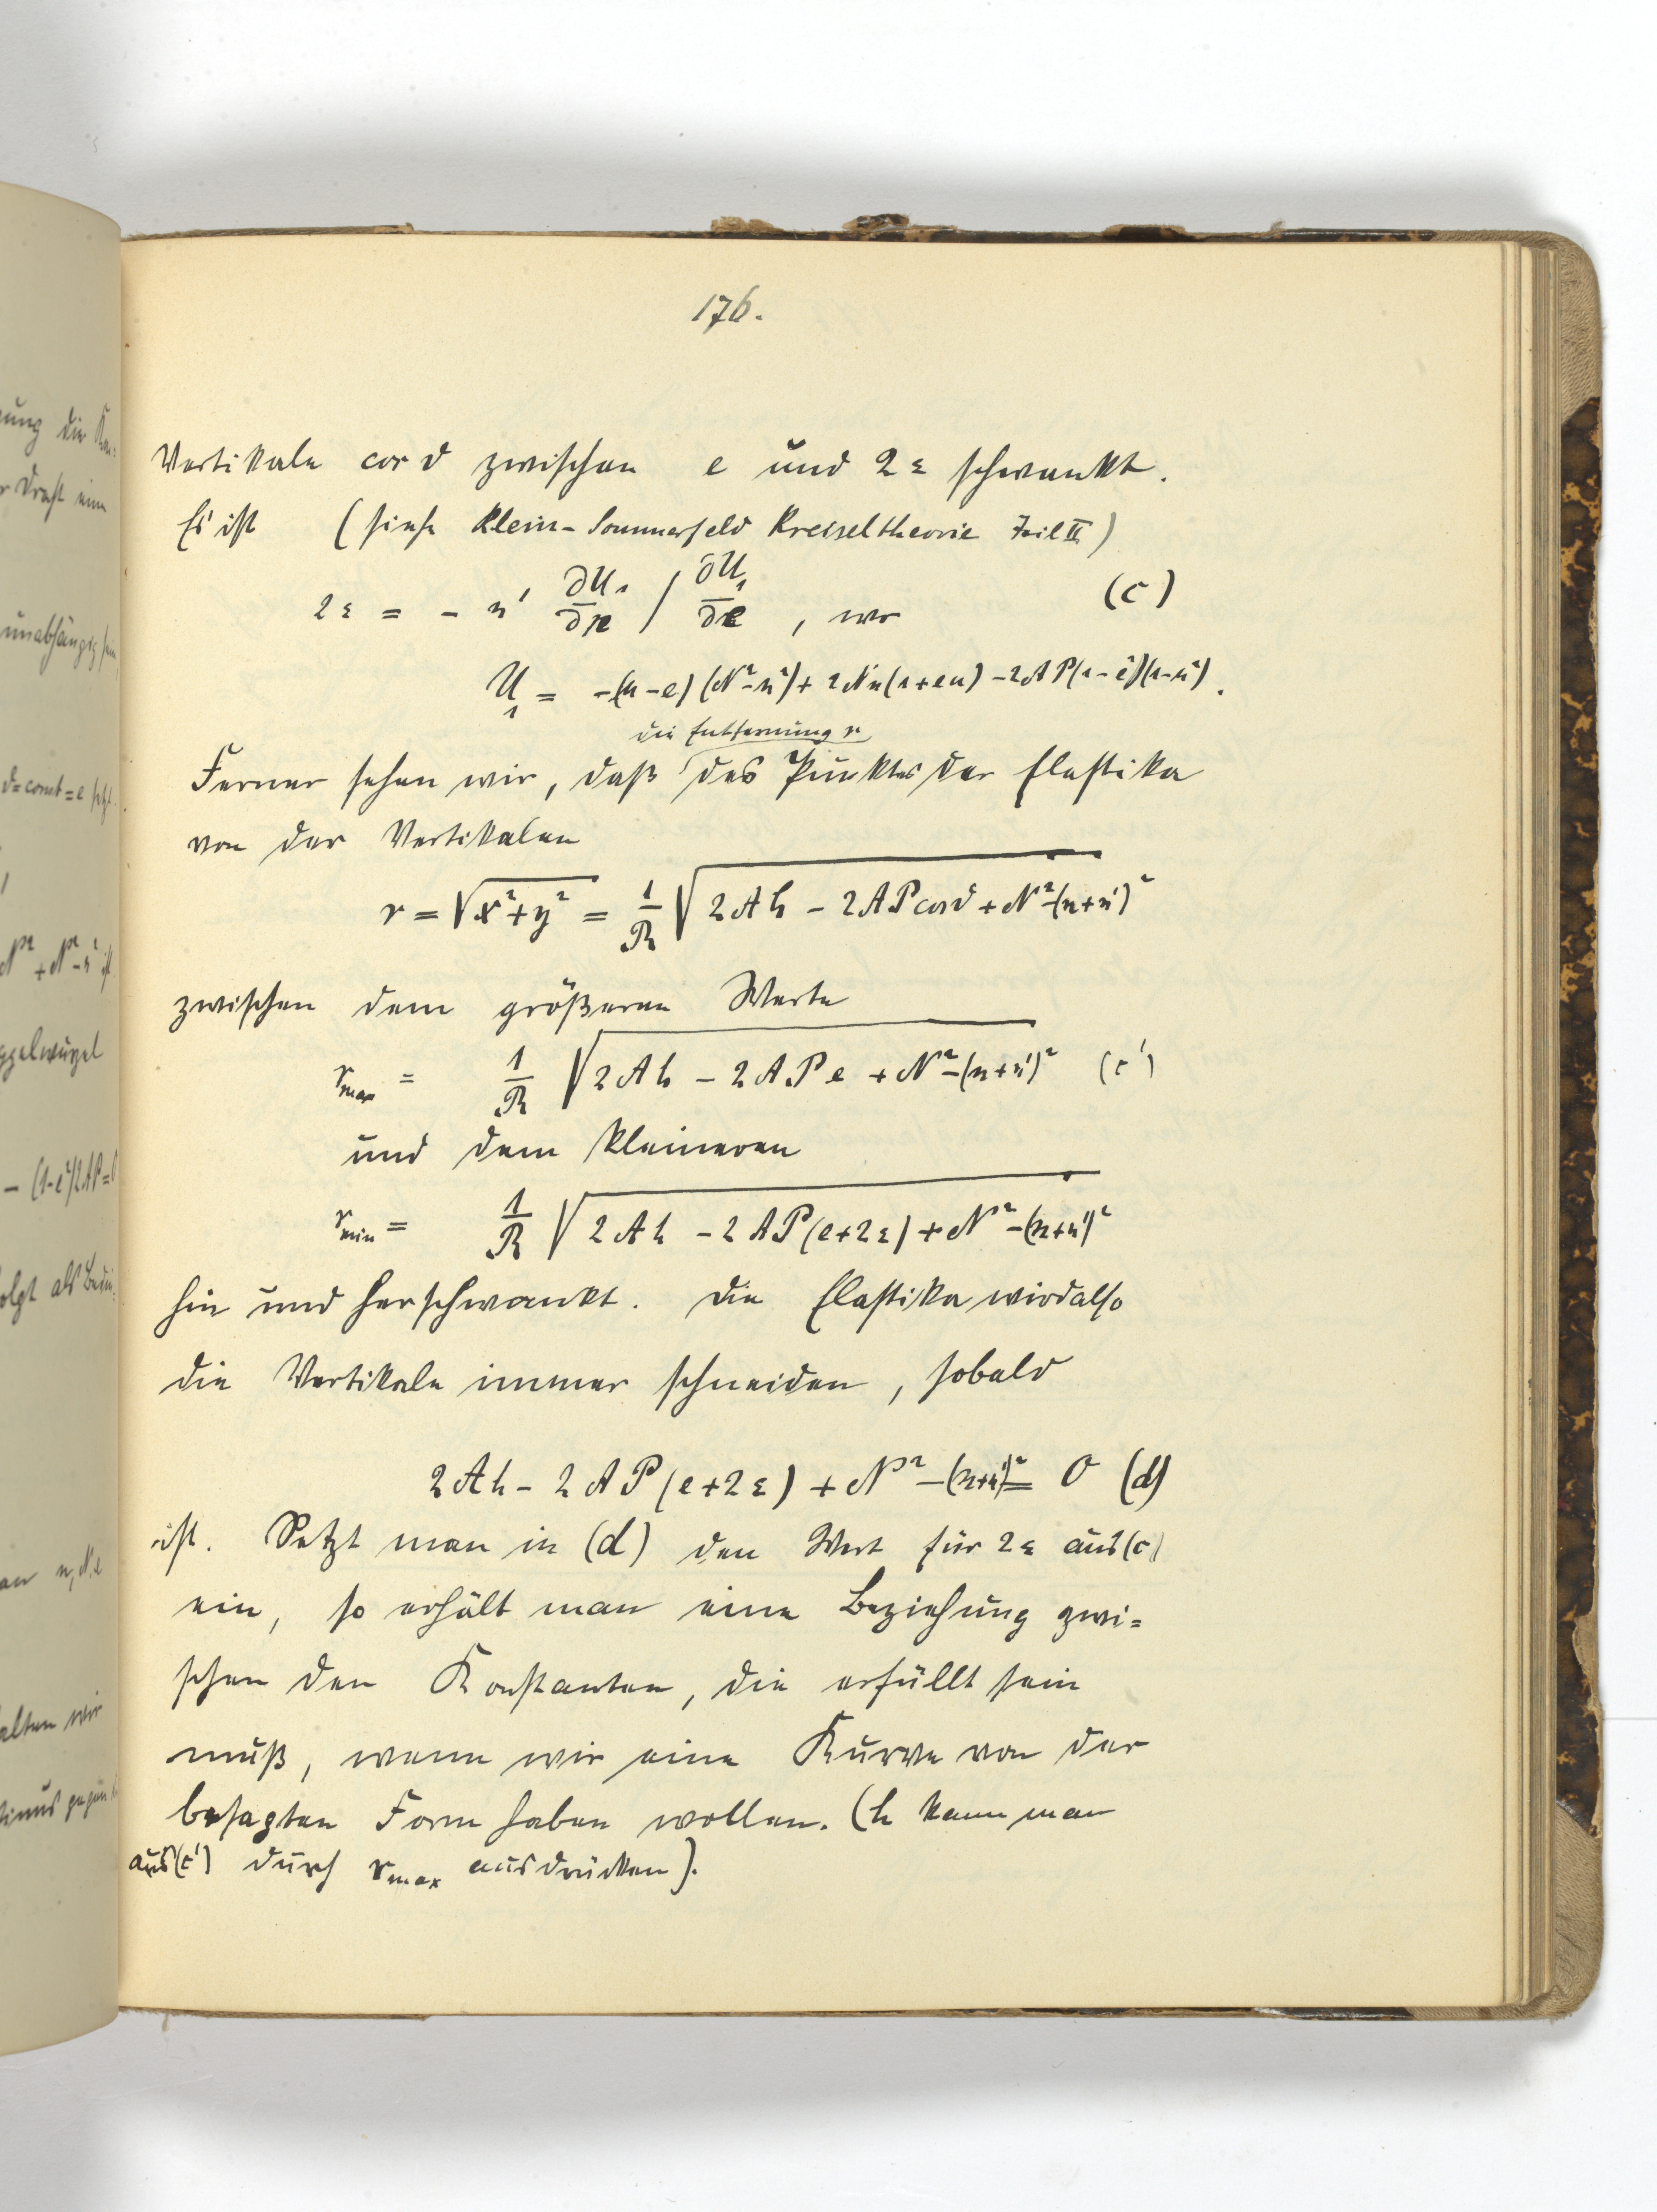 176.
Vertikale cos ϑ zwischen e und 2ε schwankt.
Es ist (siehe Klein-Sommerfeld Kreiseltheorie Teil II)
2ε = - n' ∂U₁/∂n / ∂U₁/∂e , wo (c)
U₁ = -(u-e)(N²-n²)+2Nn(1+eu)-2AP(1-e²)(1-u²).
die Entfernung r
Ferner sehen wir, daß des Punktes der Elastika
von der Vertikalen
r = √(x²+y²) = 1/R √(2Ah - 2AP cos ϑ + N² - (n+n')²)
zwischen dem größeren Werte
r_max = 1/R √(2Ah - 2APe + N² - (n+n')²) (c')
und dem kleineren
r_min = 1/R √(2Ah - 2AP(e+2ε) + N² - (n+n')²)
hin und herschwankt. Die Elastika wird also
die Vertikale immer schneiden, sobald
2Ah - 2AP(e+2ε) + N² - (n+n')² = 0 (d)
ist. Setzt man in (d) den Wert für 2ε aus (c)
ein, so erhält man eine Beziehung zwi=
schen den Konstanten, die erfüllt sein
muß, wenn wir eine Kurve von der
besagten Form haben wollen. (h kann man
aus (c') durch r_max ausdrücken).